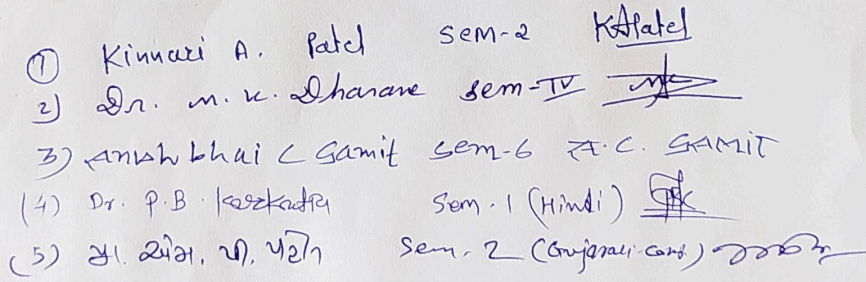 ① Kinnari A. Patel sem-2 KAPatel
2) Dr. M. K. Dhanane sem-IV
3) Anish bhai C Gamit sem-6 A.C. GAMIT
(4) Dr. P.B. Sem. 1 (Hindi)
(5) પ્રા. એમ. પી. પટેલ Sem. 2 (Gujarati-Com.)